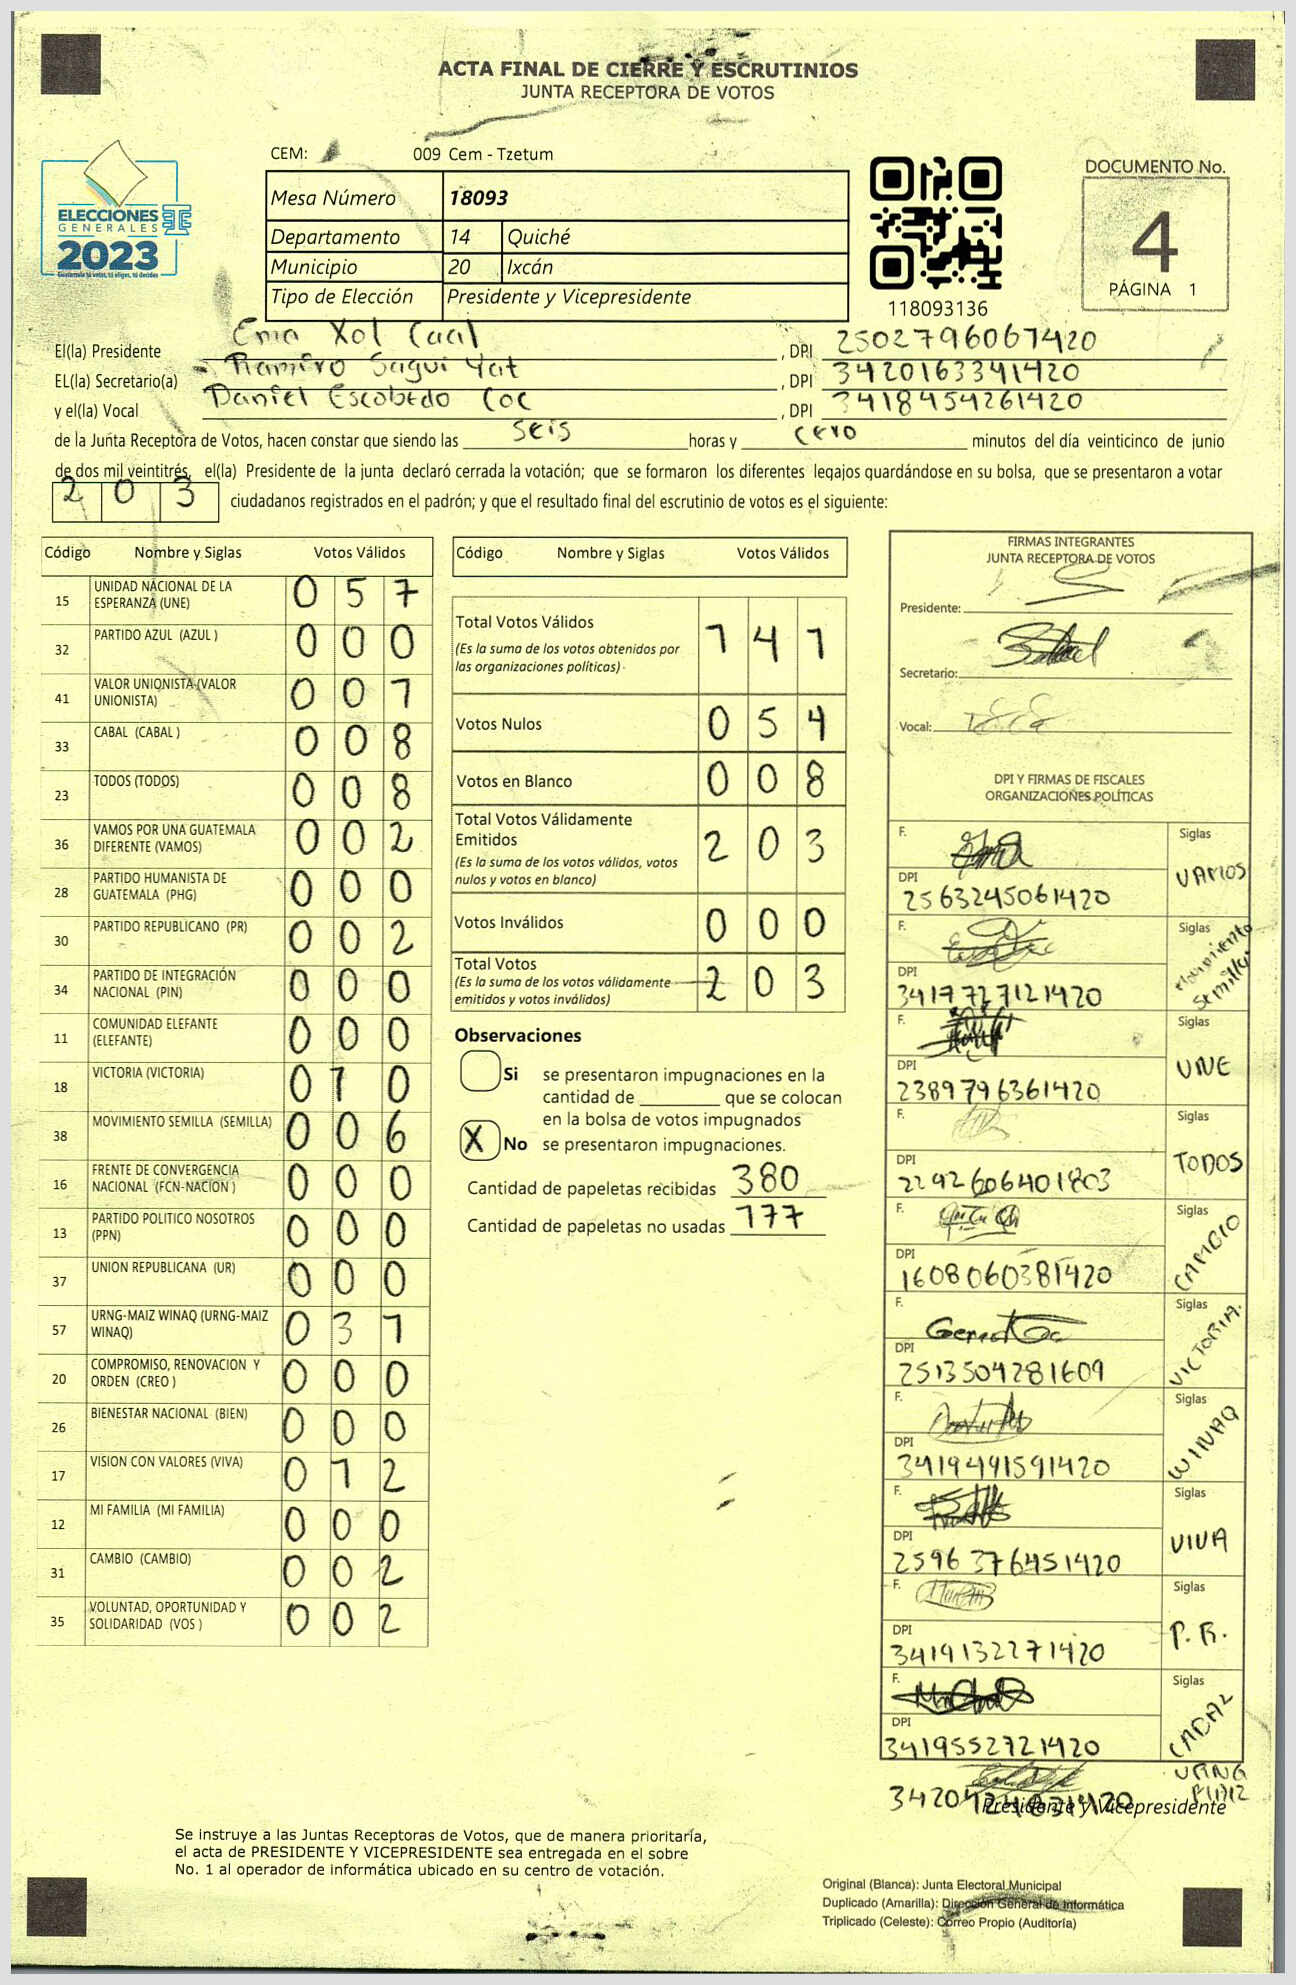 ACTA FINAL DE CIERRE Y ESCRUTINIOS
JUNTA RECEPTORA DE VOTOS
CEM: 009 Cem - Tzetum
ELECCIONES
GENERALES
2023
Guatemala tú votas, tú eliges, tú decides
Mesa Número 18093
Departamento 14 Quiché
Municipio 20 Ixcán
Tipo de Elección Presidente y Vicepresidente
118093136
DOCUMENTO No.
4
PÁGINA 1
El(la) Presidente Ema Xol Caal , DPI 2502796067420
EL(la) Secretario(a) Ramiro Sagui Yat , DPI 3420163341420
y el(la) Vocal Daniel Escobedo Coc , DPI 3418454261420
de la Junta Receptora de Votos, hacen constar que siendo las seis horas y cero minutos del día veinticinco de junio
de dos mil veintitrés, el(la) Presidente de la junta declaró cerrada la votación; que se formaron los diferentes legajos guardándose en su bolsa, que se presentaron a votar
203 ciudadanos registrados en el padrón; y que el resultado final del escrutinio de votos es el siguiente:
Código Nombre y Siglas Votos Válidos
15 UNIDAD NACIONAL DE LA ESPERANZA (UNE) 0 5 7
32 PARTIDO AZUL (AZUL ) 0 0 0
41 VALOR UNIONISTA (VALOR UNIONISTA) 0 0 1
33 CABAL (CABAL ) 0 0 8
23 TODOS (TODOS) 0 0 8
36 VAMOS POR UNA GUATEMALA DIFERENTE (VAMOS) 0 0 2
28 PARTIDO HUMANISTA DE GUATEMALA (PHG) 0 0 0
30 PARTIDO REPUBLICANO (PR) 0 0 2
34 PARTIDO DE INTEGRACIÓN NACIONAL (PIN) 0 0 0
11 COMUNIDAD ELEFANTE (ELEFANTE) 0 0 0
18 VICTORIA (VICTORIA) 0 1 0
38 MOVIMIENTO SEMILLA (SEMILLA) 0 0 6
16 FRENTE DE CONVERGENCIA NACIONAL (FCN-NACION ) 0 0 0
13 PARTIDO POLITICO NOSOTROS (PPN) 0 0 0
37 UNION REPUBLICANA (UR) 0 0 0
57 URNG-MAIZ WINAQ (URNG-MAIZ WINAQ) 0 3 1
20 COMPROMISO, RENOVACION Y ORDEN (CREO ) 0 0 0
26 BIENESTAR NACIONAL (BIEN) 0 0 0
17 VISION CON VALORES (VIVA) 0 1 2
12 MI FAMILIA (MI FAMILIA) 0 0 0
31 CAMBIO (CAMBIO) 0 0 2
35 VOLUNTAD, OPORTUNIDAD Y SOLIDARIDAD (VOS ) 0 0 2
Código Nombre y Siglas Votos Válidos
Total Votos Válidos 1 4 1
(Es la suma de los votos obtenidos por
las organizaciones políticas)
Votos Nulos 0 5 4
Votos en Blanco 0 0 8
Total Votos Válidamente
Emitidos 2 0 3
(Es la suma de los votos válidos, votos
nulos y votos en blanco)
Votos Inválidos 0 0 0
Total Votos 2 0 3
(Es la suma de los votos válidamente
emitidos y votos inválidos)
Observaciones
Si se presentaron impugnaciones en la
cantidad de ________ que se colocan
en la bolsa de votos impugnados
X No se presentaron impugnaciones.
Cantidad de papeletas recibidas 380
Cantidad de papeletas no usadas 177
FIRMAS INTEGRANTES
JUNTA RECEPTORA DE VOTOS
Presidente:
Secretario:
Vocal:
DPI Y FIRMAS DE FISCALES
ORGANIZACIONES POLÍTICAS
F. Siglas VAMOS
DPI 2563245061420
F. Siglas Movimiento Semilla
DPI 3417727121420
F. Siglas UNE
DPI 2389796361420
F. Siglas TODOS
DPI 2292606401803
F. Siglas CAMBIO
DPI 1608060381420
F. Siglas VICTORIA.
DPI 2513504281609
F. Siglas WINAQ
DPI 3419491591420
F. Siglas VIVA
DPI 2596376451420
F. Siglas P.R.
DPI 3419132271420
F. Siglas
DPI 3419552721420
URNG
Presidente y Vicepresidente
Se instruye a las Juntas Receptoras de Votos, que de manera prioritaria,
el acta de PRESIDENTE Y VICEPRESIDENTE sea entregada en el sobre
No. 1 al operador de informática ubicado en su centro de votación.
Original (Blanca): Junta Electoral Municipal
Duplicado (Amarilla): Dirección General de Informática
Triplicado (Celeste): Correo Propio (Auditoría)